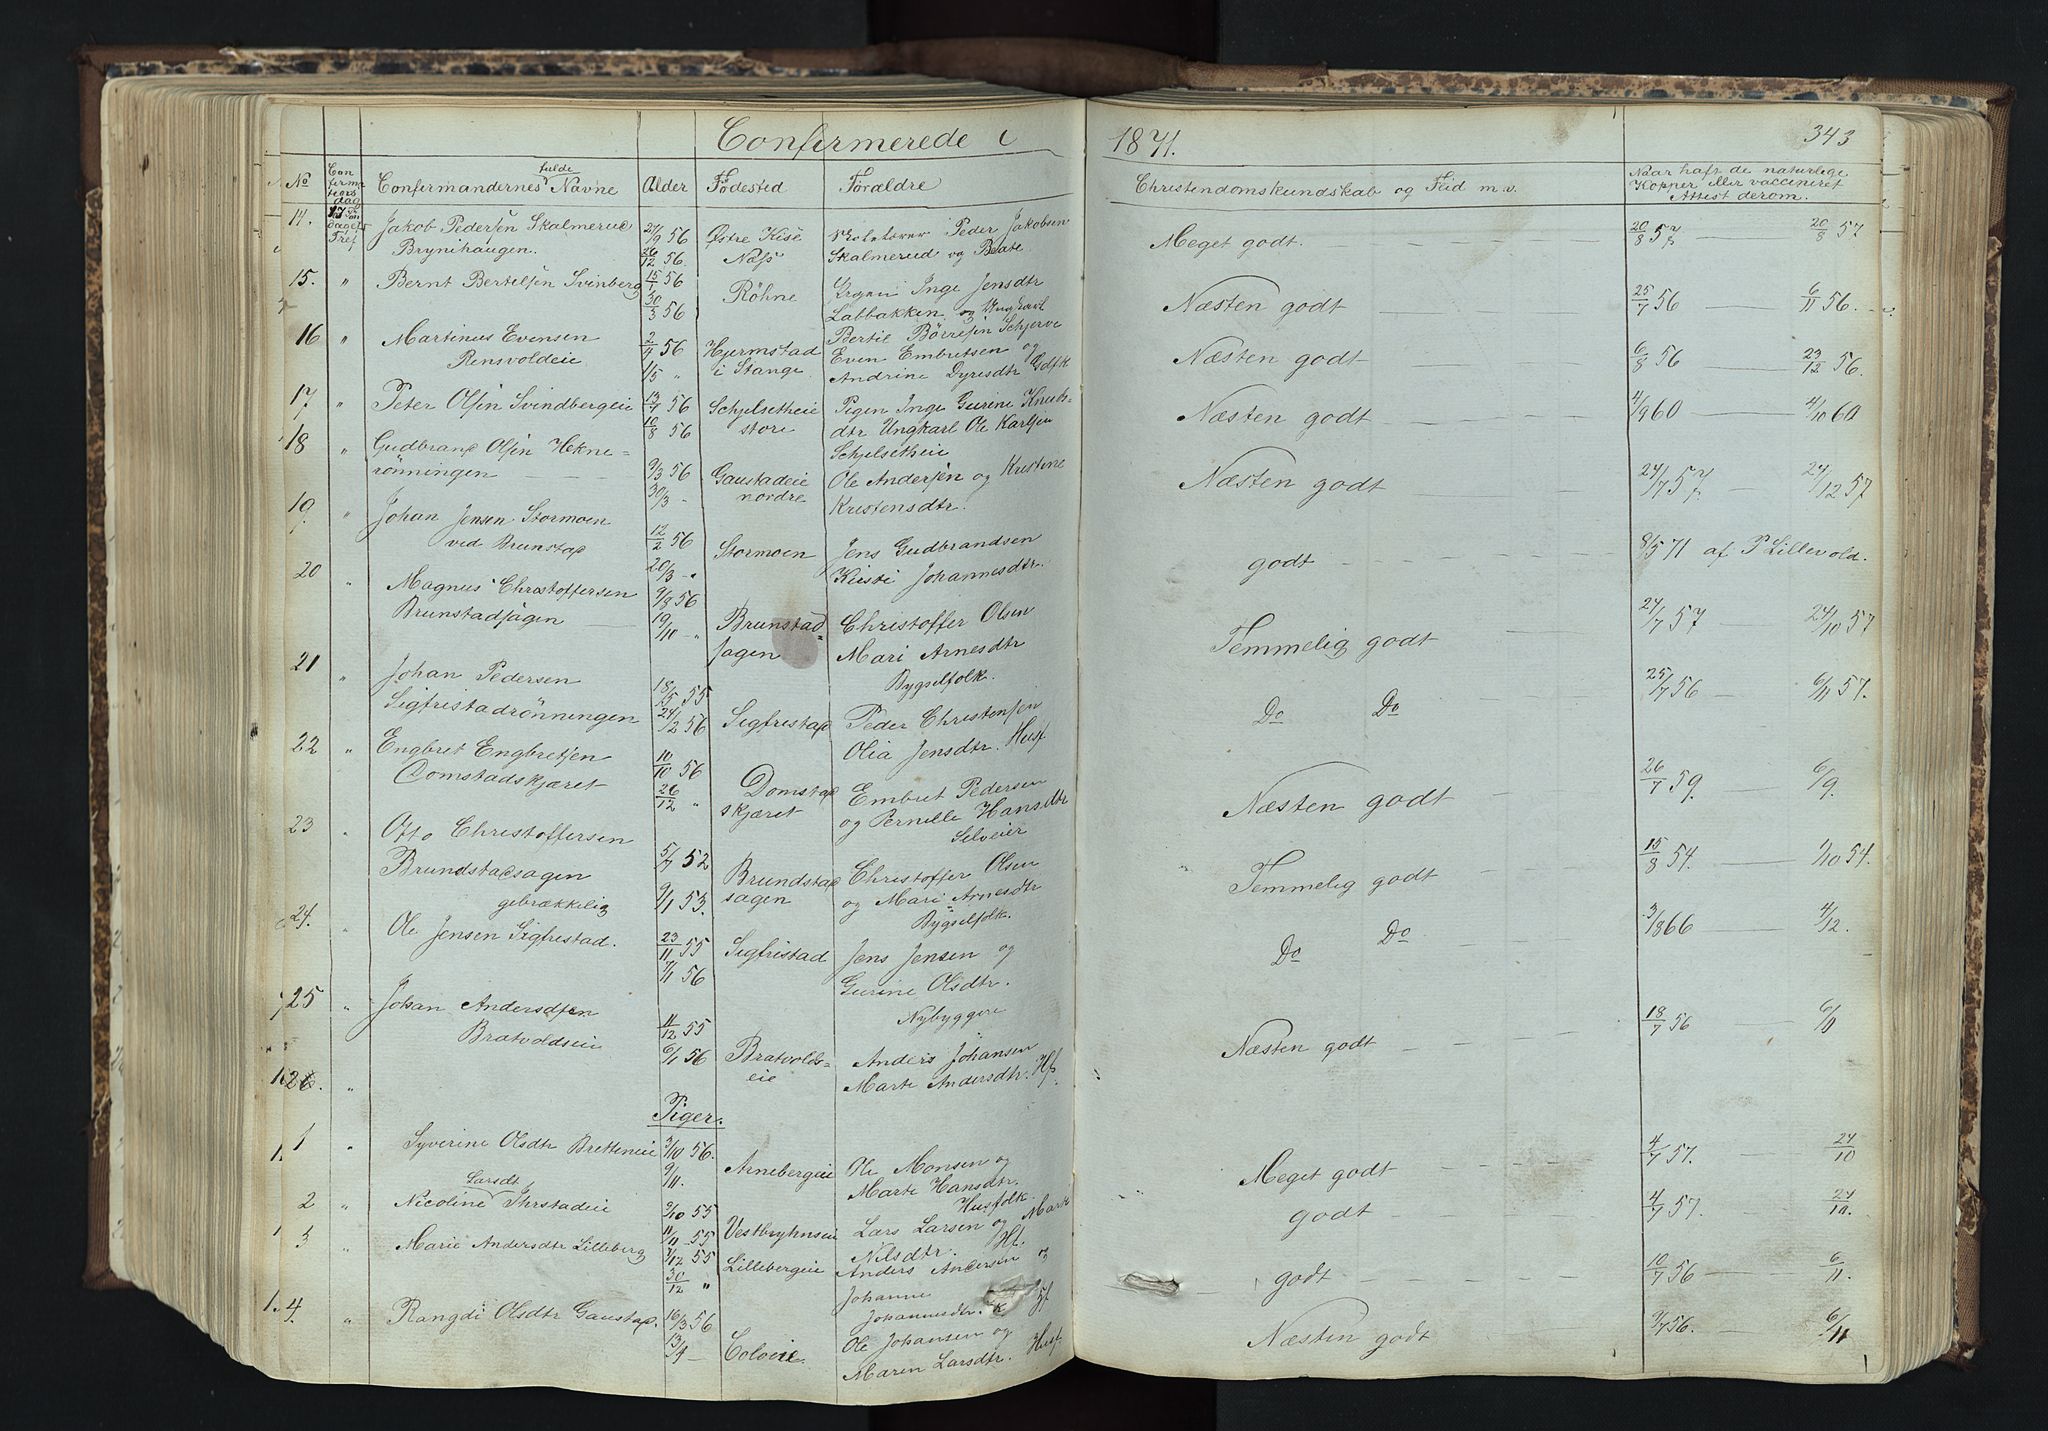 Confirmerede i 1871. 343
No Confirmationsdag Confirmandernes fulde Navne Alder Födested Forældre Christendomskundskab og Flid m.v. Naar haft de naturlige Kopper eller vaccineret Attest derom.
14. Jakob Pedersen Skalmerud 27/9 56 Østre Kise Peder Jakobsen Meget godt. 20/8 57 20/8 57
Brynihaugen. 26/12 56 Næss Skalmerud og Beate
15. " Bernt Bertelsen Svinberg 15/1 56 Röhne Inge Jensdtr Næsten godt 25/7 56 6/11 56.
30/3 56 Labbakken og Ungkarl
Bertil Börresen Schjerve
16 " Martinus Evensen 2/4 56 Hjermstad Even Embretsen og Næsten godt 6/8 56 23/12 56.
Rensvoldeie 1/5 " i Stange Andrine Dyresdtr Gdfk
17 " Peter Olsen Svindbergeie 13/7 56 Schjelsetheie Pigen Inge Gurine Knuds- Næsten godt 4/9 60 4/10 60
10/8 56 store dtr Ungkarl Ole Karlsen
Schjelsetheie
18 " Gudbrand Olsen Hekne- 9/3 56 Gaustadeie Ole Andersen og Kristine Næsten godt 24/7 57 24/12 57
rönningen 30/3 - nordre Kristensdtr.
19 " Johan Jensen Stormoen 12/2 56 Stormoen Jens Gudbrandsen godt 8/5 71 af P Lillevold.
ved Brunstad 20/3 -" Kirsti Johannesdtr.
20 " Magnus Christoffersen 9/8 56 Brunstad= Christoffer Olsen Temmelig godt 24/7 57 24/10 57
Brunstadsagen 19/10 " sagen Mari Arnesdtr
Bygselfolk.
21 " Johan Pedersen 18/5 55 Sigfristad Peder Christensen Do Do 25/7 56 6/11 57.
Sigfristadrönningen 24/2 56 Olia Jensdtr. Husf
22 " Engbret Engbretsen 10/10 56 Domstad Embret Pedersen Næsten godt 26/7 59. 6/9.
Domstadskjæret 26/12 " skjæret og Pernille Hansdtr
Selveier
23 " Otto Christoffersen 5/7 52 Brundstad Christoffer Olsen Temmelig godt 15/8 54. 1/10 54.
Brundstadsagen 9/1 53. sagen og Mari Arnesdtr
gebrækkelig Bygselfolk.
24. " Ole Jensen Sigfristad. 23/11 55 Sigfristad Jens Jensen og Do Do 3/8 66 4/12.
7/1 56 Gurine Olsdtr.
Nybyggere
25 " Johan Andersdsen 11/12 55 Bratvolds= Anders Johansen Næsten godt 18/7 56 6/11
Bratvoldseie 6/1 56 eie Marte Andersdtr. Hf.
26. "
Piger.
1 " Syverine Olsdtr Bretteneie 3/10 56. Arnebergeie Ole Monsen og Meget godt. 4/7 57. 24/10
9/11. Marte Hansdtr.
Husfolk.
2 " Nicoline Larsdt Ihrstadeie 9/10 55 Vestbryhnseie Lars Larsen og Marte godt 4/7 57. 24/10.
11/11 55 Nilsdtr. Hf.
3 " Marie Andersdtr Lilleberg 7/12 55 Lillebergeie Anders Andersen og godt 10/7 56 6/11.
30/12 " Johanne
Johannesdtr. Hf
4. " Rangdi Olsdtr Gaustad. 16/3 56 Coloeie. Ole Johansen og Næsten godt 7/7 56. 6/11
13/4 - Maren Larsdtr. Husf